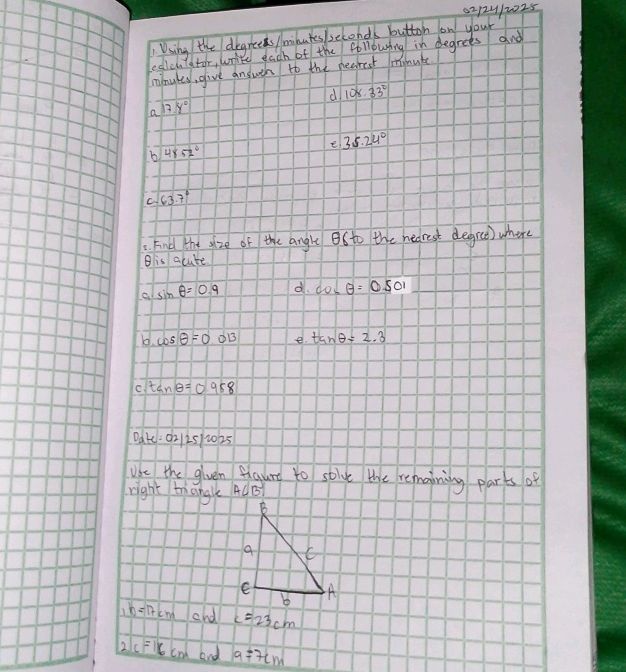 02/24/2025
1. Using the degrees/minutes/seconds button on your
calculator, write each of the following in degrees and
minutes, give answer to the nearest minute.
a. 17.8°
d. 108.33°
b. 48.52°
e. 35.24°
c. 63.7°
2. Find the size of the angle θ (to the nearest degree) where
θ is acute
a. sin θ = 0.9
d. cos θ = 0.501
b. cos θ = 0.013
e. tan θ = 2.3
c. tan θ = 0.958
Date: 02/25/2025
Use the given figure to solve the remaining parts of
right triangle ACB
B
a
c
C
b
A
1. b = 17 cm and c = 23 cm
2. c = 16 cm and a = 7 cm